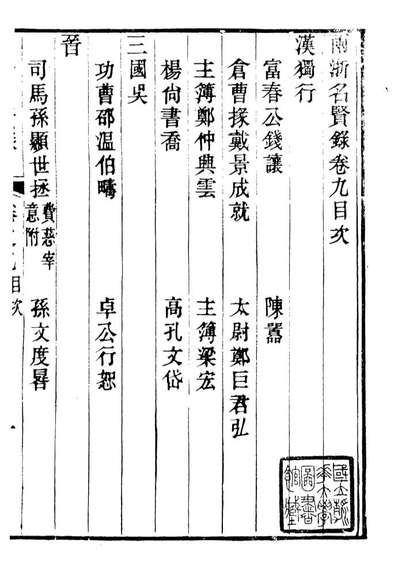 兩浙名賢錄卷九目次
漢獨行
富春公錢讓 陳囂
倉曹掾戴景成就 太尉鄭巨君弘
主簿鄭仲興雲 主簿梁宏
楊尚書喬 高孔文岱
三國吳
功曹邵温伯疇 卓公行恕
晉
司馬孫顯世拯 費慈宰意附 孫文度晷
卷之九目次
一